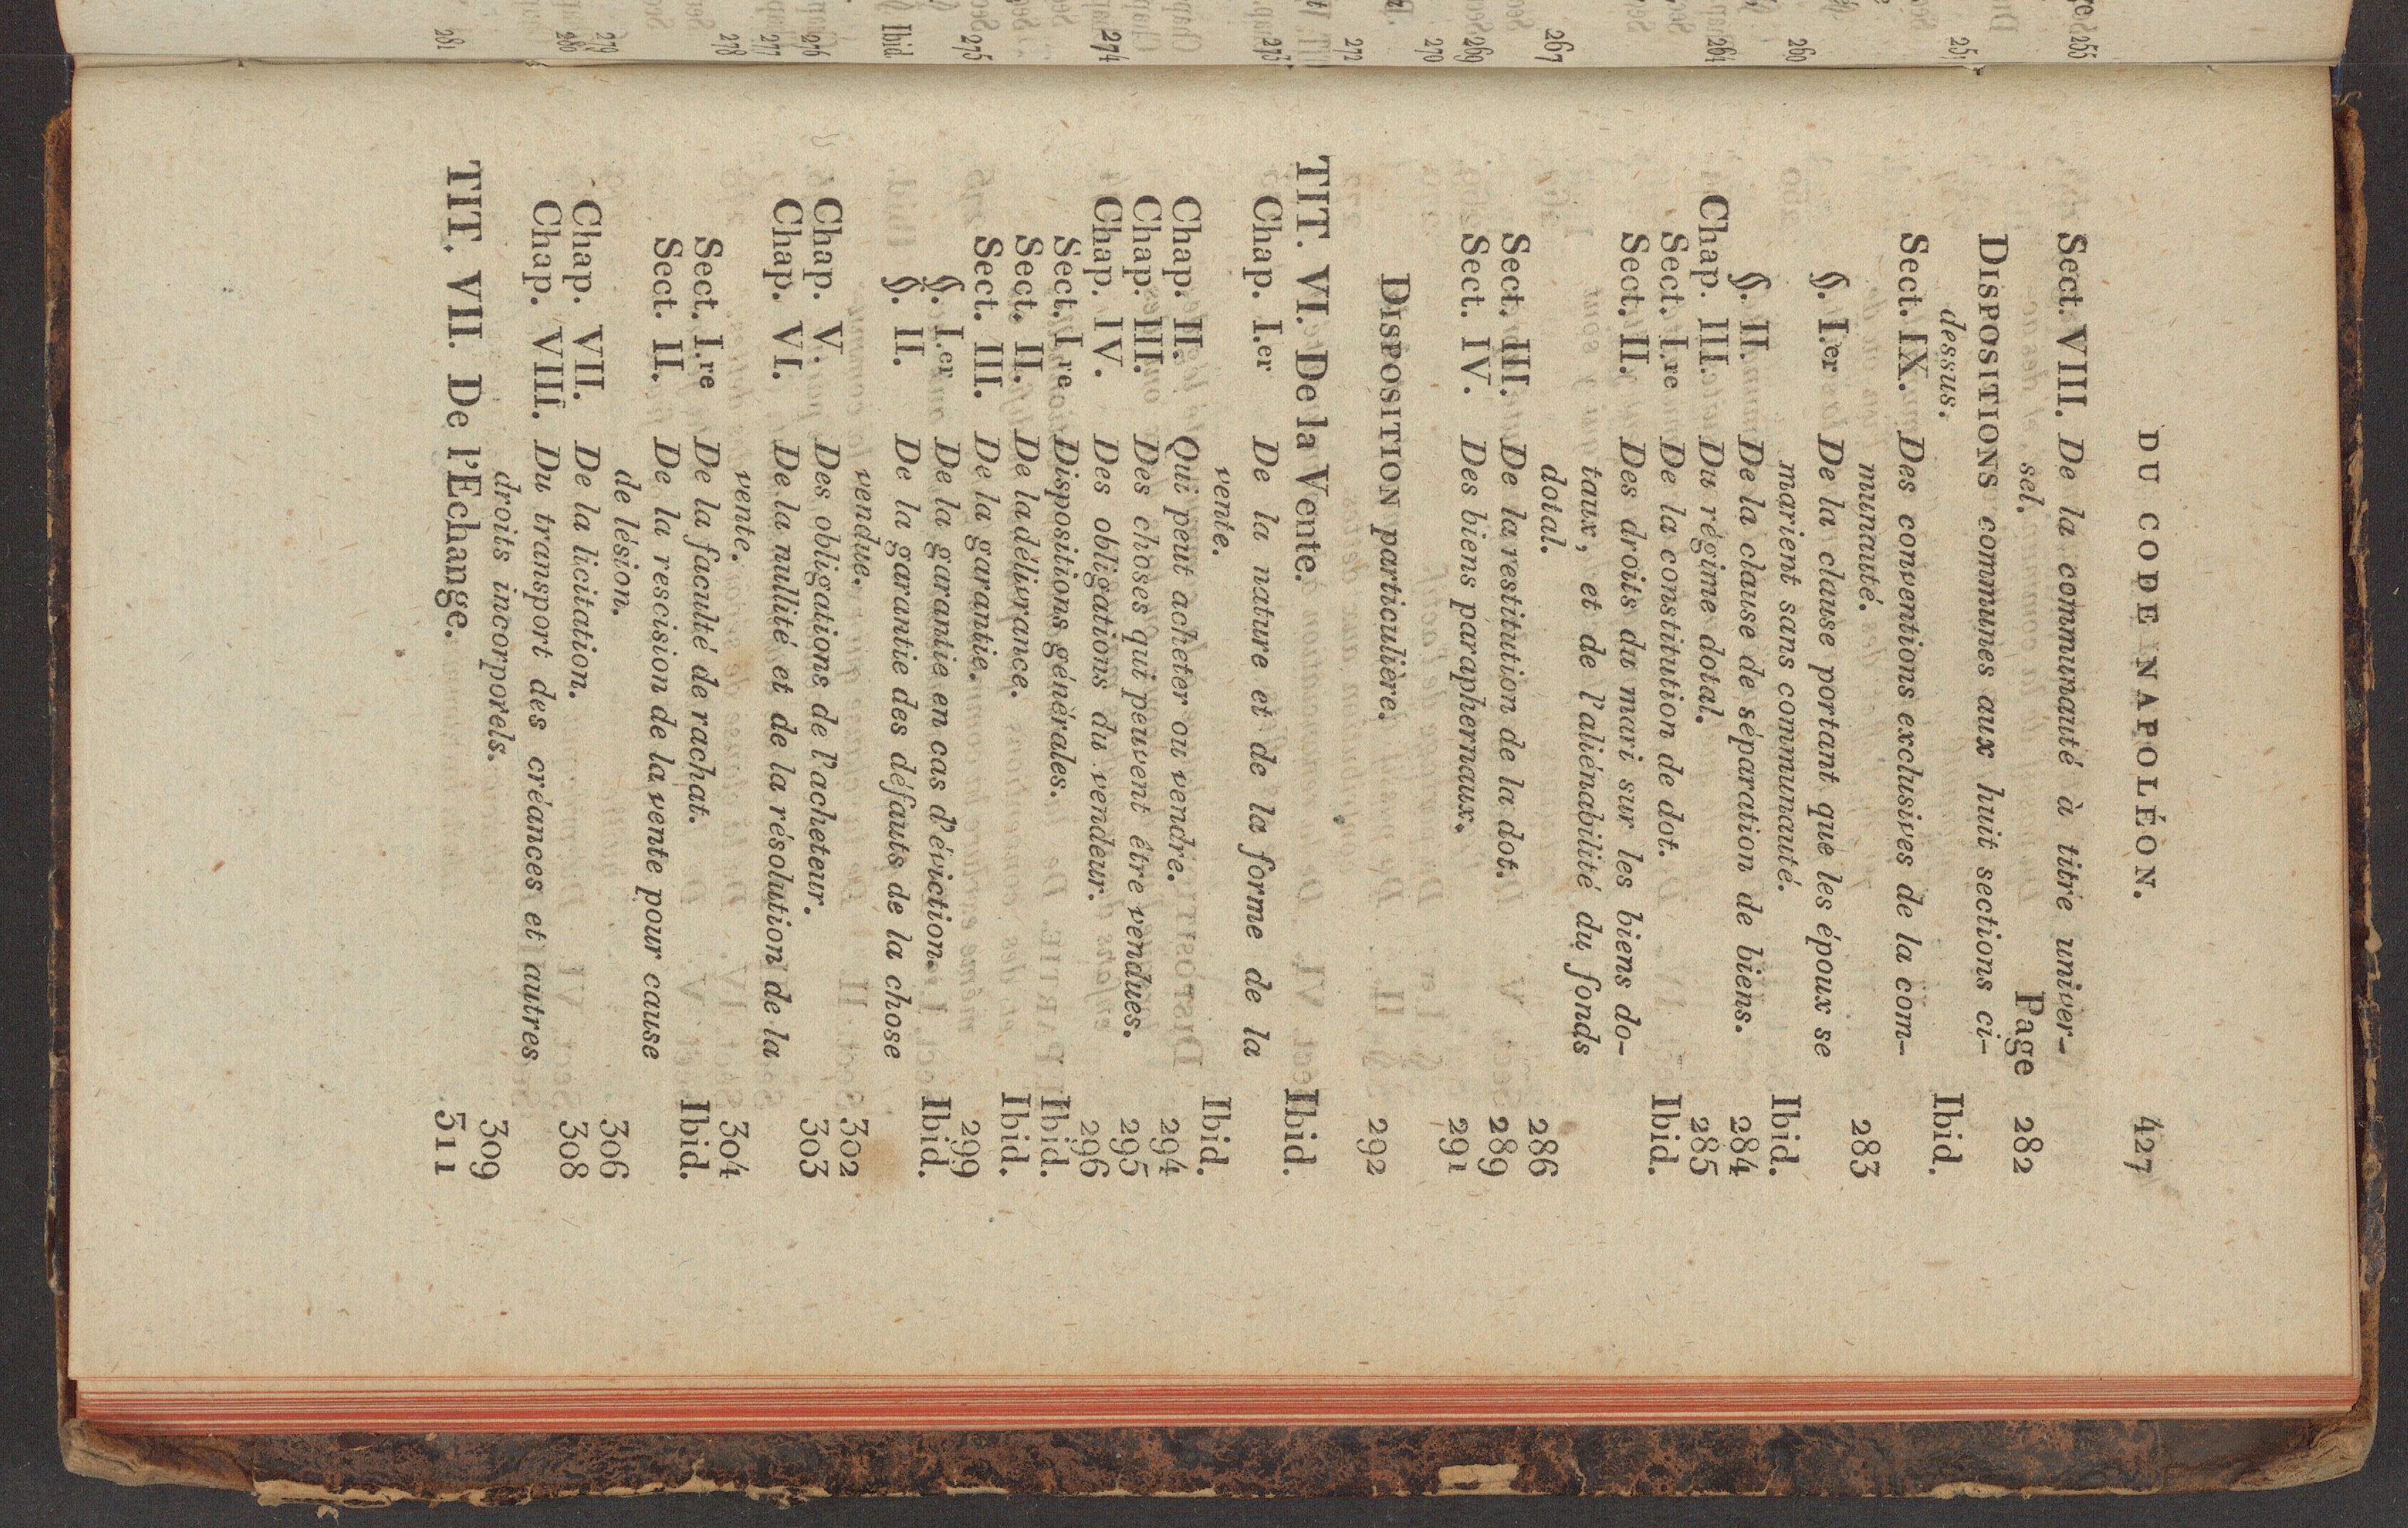 DU CODE NAPOLÉON. 427
Sect. VIII. De la communauté à titre univer-
sel. Page 282
DISPOSITIONS communes aux huit sections ci-
dessus. Ibid.
Sect. IX. Des conventions exclusives de la com-
munauté. 283
§. I.er De la clause portant que les époux se
marient sans communauté. Ibid.
§. II. De la clause de séparation de biens. 284
Chap. III. Du régime dotal. 285
Sect. I.re De la constitution de dot. Ibid.
Sect. II. Des droits du mari sur les biens do-
taux, et de l'aliénabilité du fonds
dotal. 286
Sect. III. De la restitution de la dot. 289
Sect. IV. Des biens paraphernaux. 291
DISPOSITION particulière. 292
TIT. VI. De la Vente. Ibid.
Chap. I.er De la nature et de la forme de la
vente. Ibid.
Chap. II. Qui peut acheter ou vendre. 294
Chap. III. Des choses qui peuvent être vendues. 295
Chap. IV. Des obligations du vendeur. 296
Sect. I.re Dispositions générales. Ibid.
Sect. II. De la délivrance. Ibid.
Sect. III. De la garantie. 299
§. I.er De la garantie en cas d'éviction. Ibid.
§. II. De la garantie des défauts de la chose
vendue. 302
Chap. V. Des obligations de l'acheteur. 303
Chap. VI. De la nullité et de la résolution de la
vente. 304
Sect. I.re De la faculté de rachat. Ibid.
Sect. II. De la rescision de la vente pour cause
de lésion. 306
Chap. VII. De la licitation. 308
Chap. VIII. Du transport des créances et autres
droits incorporels. 309
TIT. VII. De l'Echange. 311
255
251
260
264
267
269
270
272
273
274
275
Ibid.
276
277
278
279
280
281